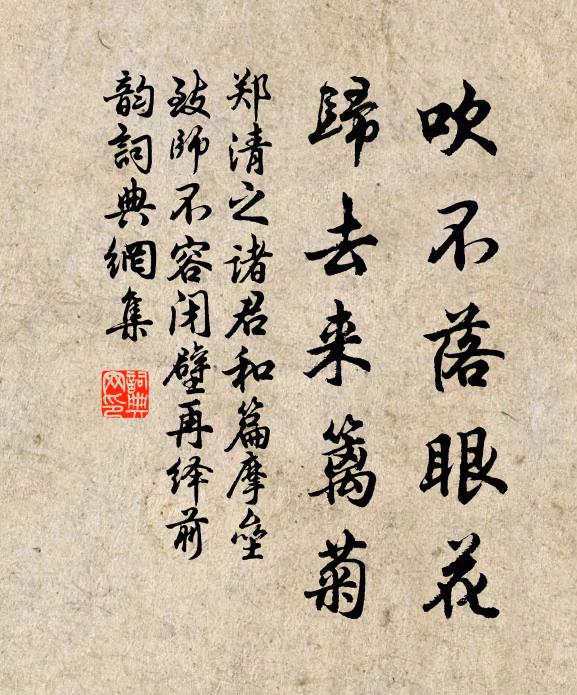 吹不落眼花
歸去来篱菊
郑清之诸君和篇摩垒
致师不容闭壁再绎前
韵詞典網集
詞典
网印